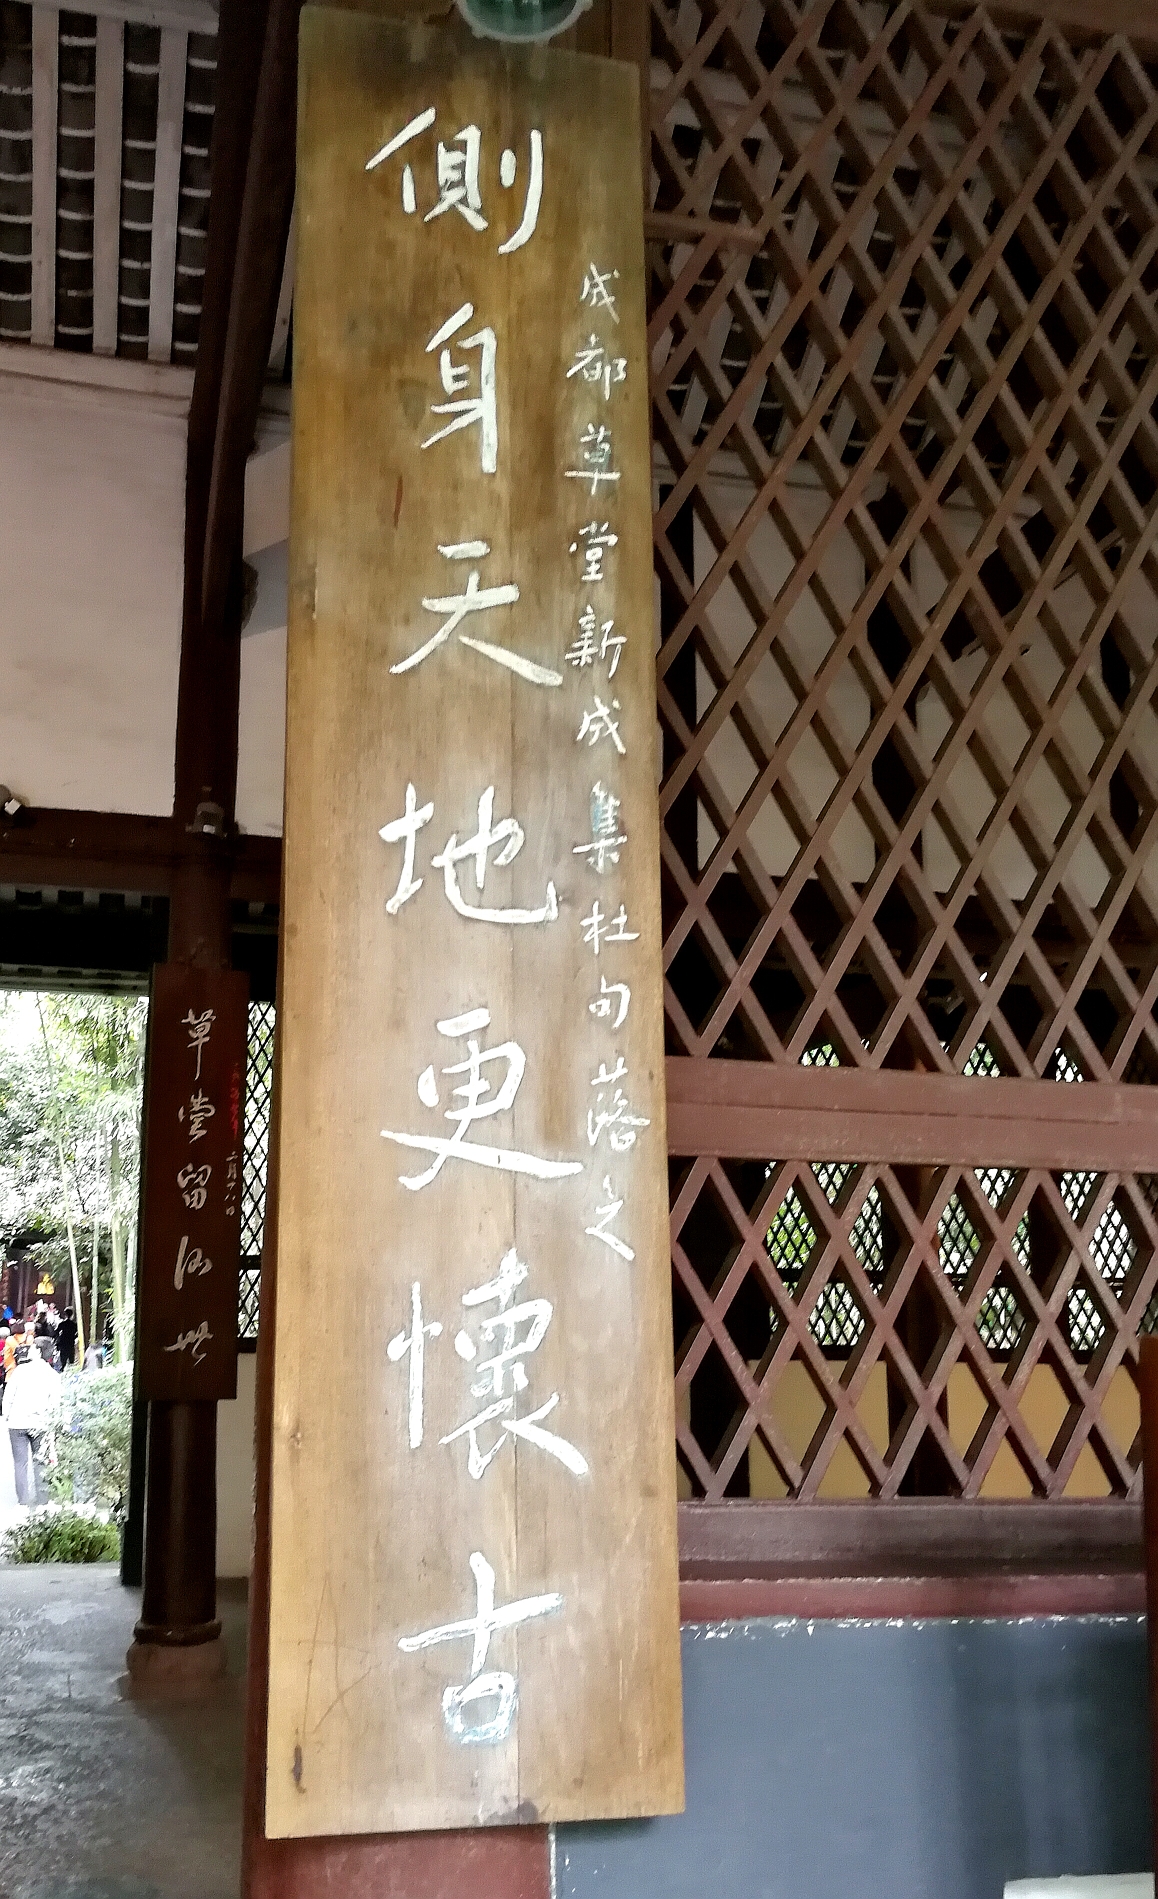 成都草堂新成集杜句落之
側身天地更懷古
草堂留後世